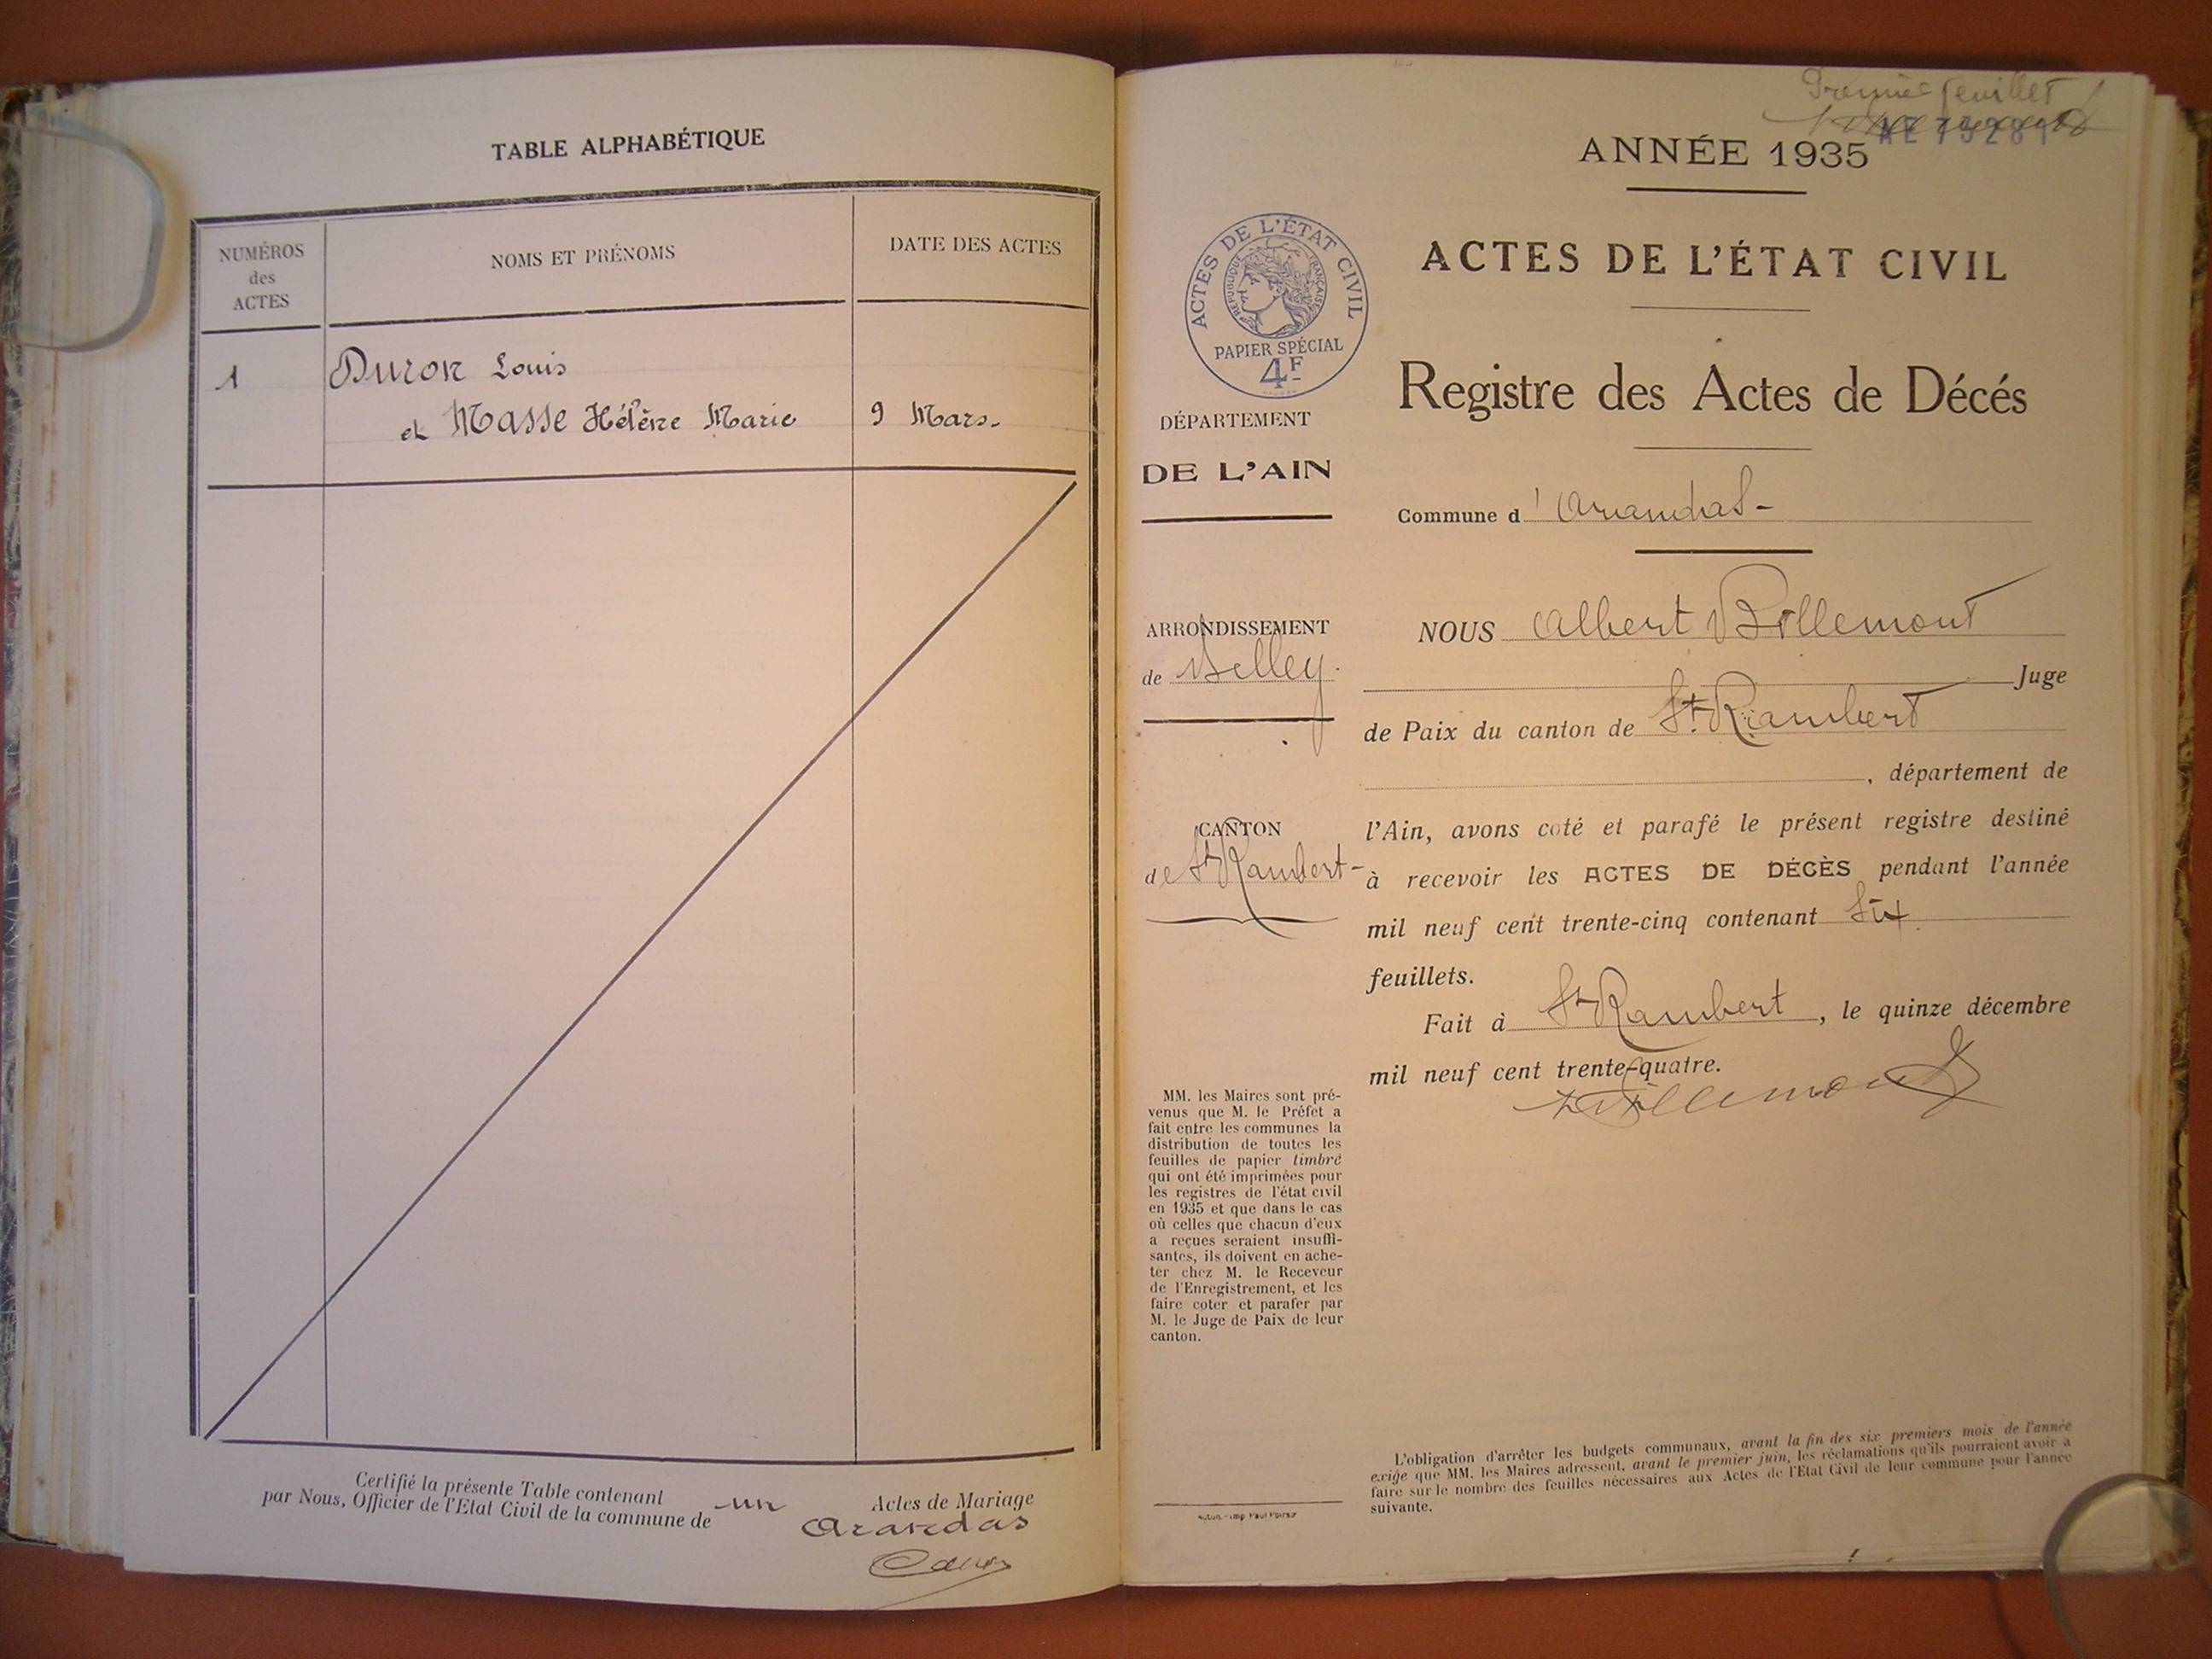 TABLE ALPHABÉTIQUE
NUMÉROS
des
ACTES
NOMS ET PRÉNOMS
DATE DES ACTES
1
Duron Louis
et Masse Hélène Marie
9 Mars.
Certifié la présente Table contenant un Actes de Mariage
par Nous, Officier de l'Etat Civil de la commune de Arandas
Premier feuillet
ANNÉE 1935
ACTES DE L'ÉTAT CIVIL
RÉPUBLIQUE FRANÇAISE
PAPIER SPÉCIAL
4F
ACTES DE L'ÉTAT CIVIL
Registre des Actes de Décés
DÉPARTEMENT
DE L'AIN
Commune d'Arandas-
ARRONDISSEMENT
de Belley.
CANTON
de St Rambert-
NOUS Albert Billemont
Juge
de Paix du canton de St. Rambert
, département de
l'Ain, avons coté et parafé le présent registre destiné
à recevoir les ACTES DE DÉCÈS pendant l'année
mil neuf cent trente-cinq contenant Six
feuillets.
Fait à St Rambert, le quinze décembre
mil neuf cent trente-quatre.
Billemont
MM. les Maires sont pré-
venus que M. le Préfet a
fait entre les communes la
distribution de toutes les
feuilles de papier timbré
qui ont été imprimées pour
les registres de l'état civil
en 1935 et que dans le cas
où celles que chacun d'eux
a reçues seraient insuffi-
santes, ils doivent en ache-
ter chez M. le Receveur
de l'Enregistrement, et les
faire coter et parafer par
M. le Juge de Paix de leur
canton.
L'obligation d'arrêter les budgets communaux, avant la fin des six premiers mois de l'année
exige que MM. les Maires adressent, avant le premier juin, les réclamations qu'ils pourraient avoir à
faire sur le nombre des feuilles nécessaires aux Actes de l'Etat Civil de leur commune pour l'année
suivante.